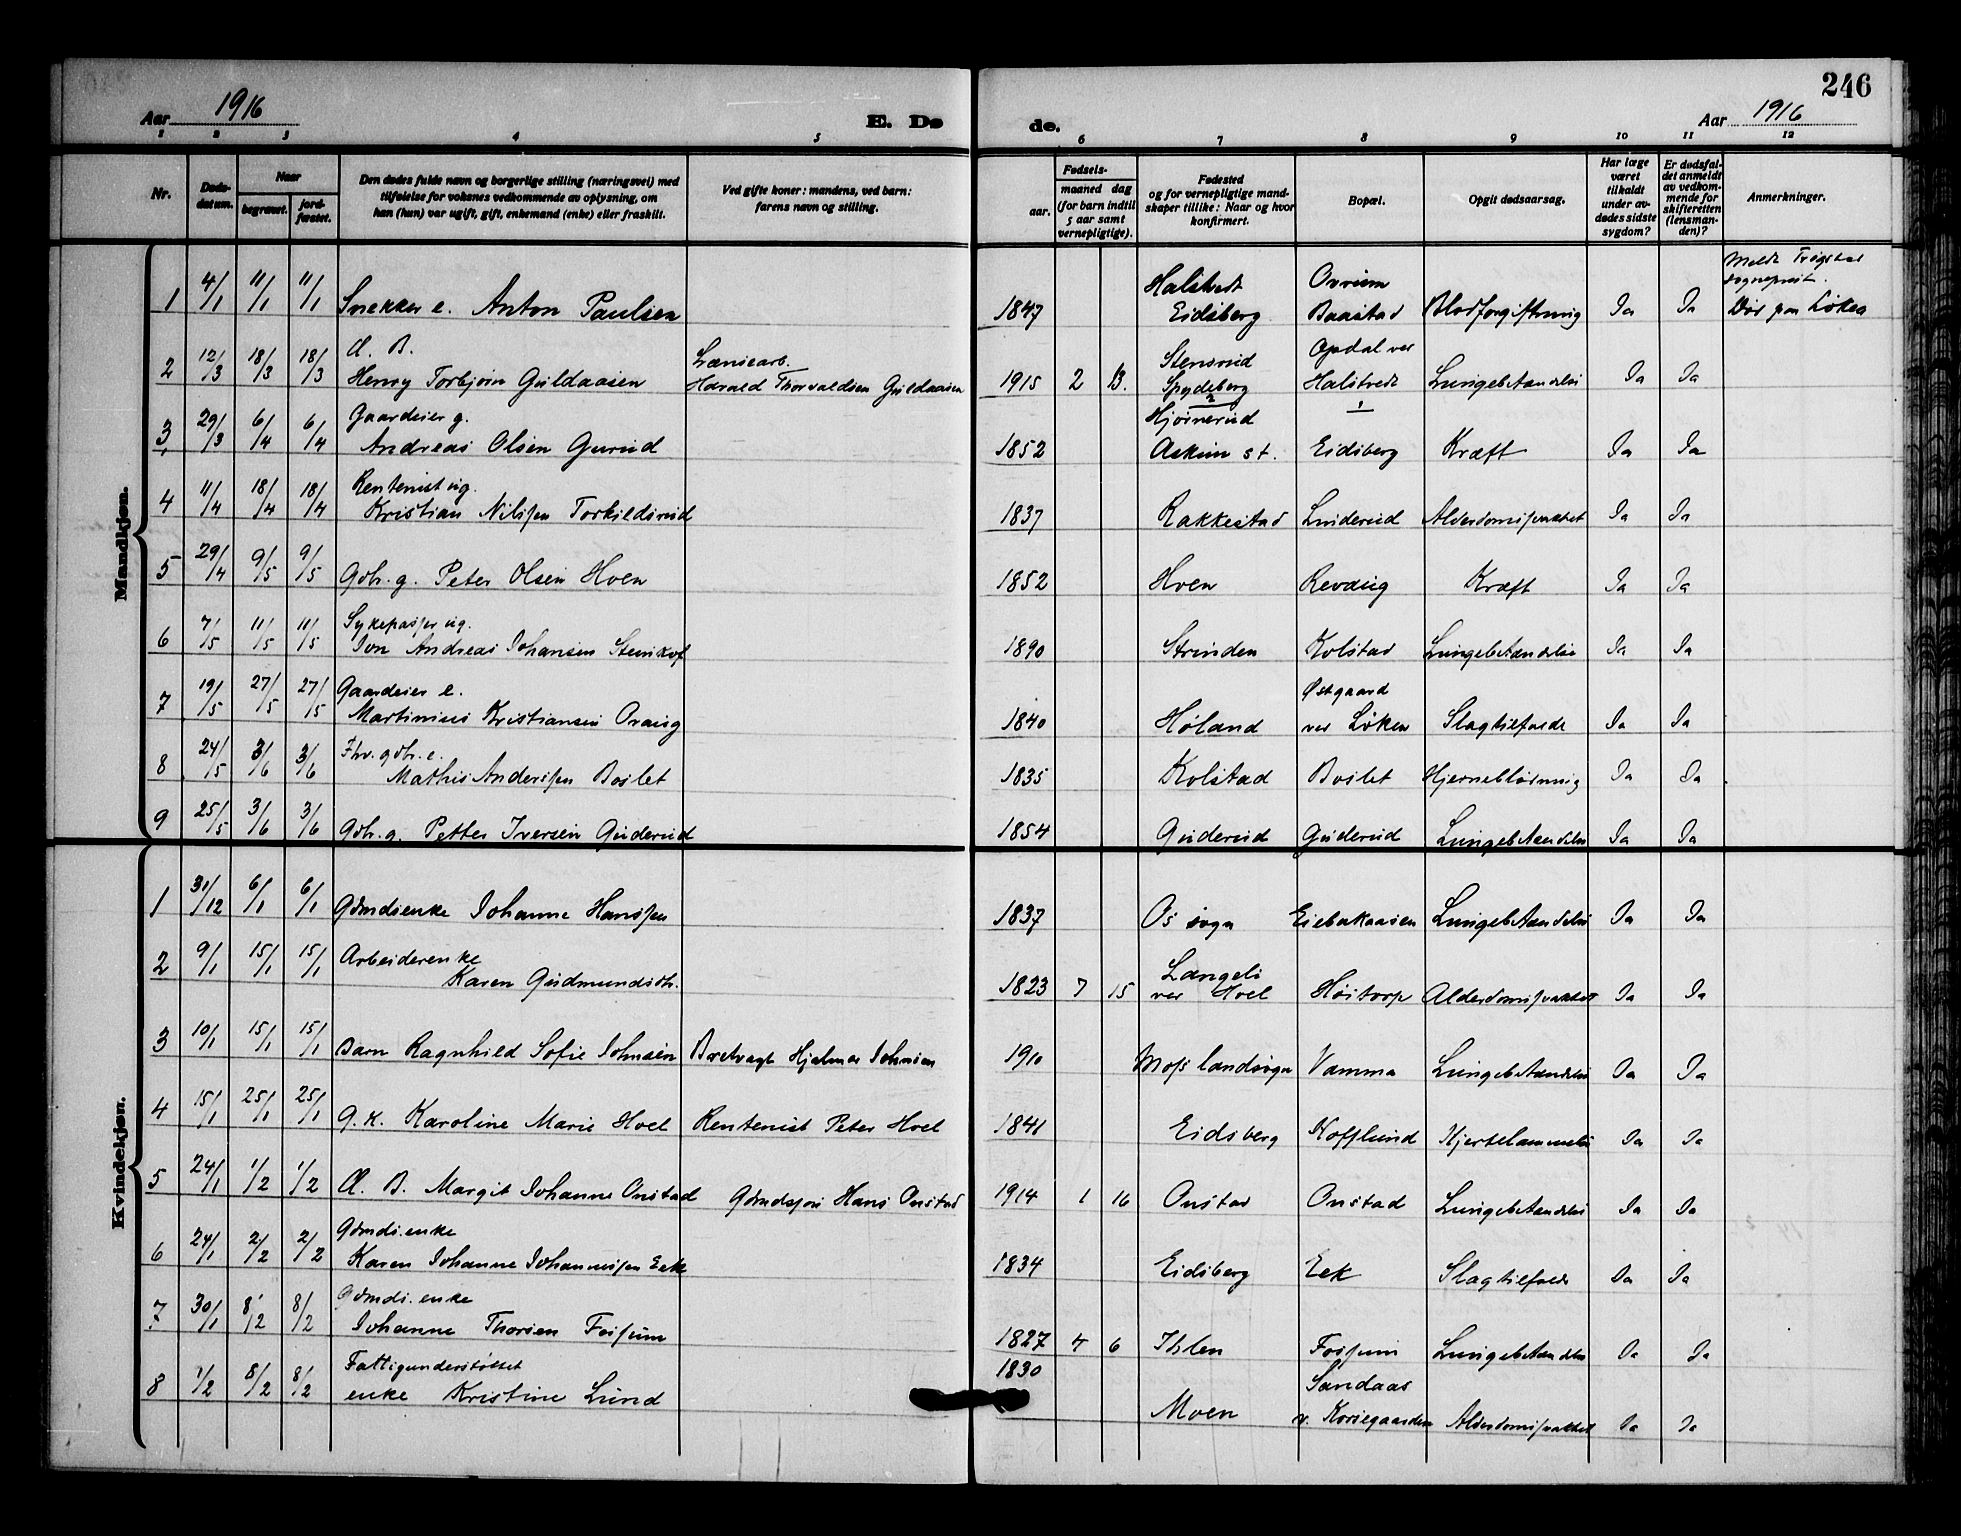 246
Aar 1916
E. Dø
de.
Aar 1916
1 2 3 4 5
6 7 8 9 10 11 12
Nr.
Døds-
datum.
Naar
begravet.
jord-
fæstet.
Den dødes fulde navn og borgerlige stilling (næringsvei) med
tilføielse for voksnes vedkommende av oplysning, om
han (hun) var ugift, gift, enkemand (enke) eller fraskilt.
Ved gifte koner: mandens, ved barn:
farens navn og stilling.
Fødsels-
aar.
maaned dag
(for barn indtil
5 aar samt
vernepligtige).
Fødested
og for vernepligtige mand-
skaper tillike: Naar og hvor
konfirmert.
Bopæl.
Opgit dødsaarsag.
Har læge
været
tilkaldt
under av-
dødes sidste
sygdom?
Er dødsfal-
det anmeldt
av vedkom-
mende for
skifteretten
(lensman-
den)?
Anmerkninger.
Mandkjøn.
Meldt Trøgstad
sogneprest.
4/1 11/1 11/1 Halstvedt
1 Snekker e. Anton Paulsen 1847 Eidsberg Baastad Blodforgiftning Ja Ja Død paa Løken
12/3 18/3 18/3 Æ. B. Lænsearb. Stensrud Opdal ved
2 Henry Torbjørn Guldaasen Harald Thorvaldsen Guldaasen 1915 2 13. Spydeberg Halstvedt Lungebetændelse Ja Ja
29/3 6/4 6/4 Gaardeier g. Hjørnerud
3 Andreas Olsen Gurud 1852 Askim st. Eidsberg Kræft Ja Ja
11/4 18/4 18/4 Rentenist ug.
4 Kristian Nilssen Torkildsrud 1837 Rakkestad Linderud Alderdomssvakhet Ja Ja
29/4 9/5 9/5
5 Gdbr. g. Peter Olsen Hoen 1852 Hoen Revaug Kræft Ja Ja
7/5 11/5 11/5 Sykepasser ug.
6 Jon Andreas Johansen Stenikof 1890 Strinden Kolstad Lungebetændelse Ja Ja
19/5 27/5 27/5 Gaardeier e. Østgaard
7 Martinius Kristiansen Ovaug 1840 Høland ved Løken Slagtilfælde Ja Ja
24/5 3/6 3/6 Fhv. gdbr. e.
8 Mathis Anderssen Boslet 1835 Kolstad Boslet Hjerneblødning Ja Ja
25/5 3/6 3/6
9 Gdbr. g. Petter Iversen Guderud 1854 Guderud Guderud Lungebetændelse Ja Ja
Kvindekjøn.
31/12 6/1 6/1
1 Gdmdsenke Johanne Hanssen 1837 Os sogn Eiebakaasen Lungebetændelse Ja Ja
9/1 15/1 15/1 Arbeiderenke Langeli
2 Karen Gudmundsdtr. 1823 7 15 ved Hoel Høitorp Alderdomssvakhet Ja Ja
10/1 15/1 15/1
3 Barn Ragnhild Sofie Johnsen Bretvagt Hjalmar Johnsen 1910 Moss landsogn Vamma Lungebetændelse Ja Ja
15/1 25/1 25/1
4 G. K. Karoline Marie Hoel Rentenist Peter Hoel 1841 Eidsberg Kofflund Hjertelammelse Ja Ja
24/1 1/2 1/2
5 Æ. B. Margit Johanne Onstad Gdmdssøn Hans Onstad 1914 1 16 Onstad Onstad Lungebetændelse Ja Ja
24/1 2/2 2/2 Gdmds.enke
6 Karen Johanne Johannessen Eek 1834 Eidsberg Eek Slagtilfælde Ja Ja
30/1 8/2 8/2 Gdmds.enke
7 Johanne Thorsen Fossum 1827 4 6 Ihlen Fossum Lungebetændelse Ja Ja
1/2 8/2 8/2 Fattigunderstøttet 1830 Sandaas
8 enke Kristine Lund Moen v. Korsegaarden Alderdomssvakhet Ja Ja